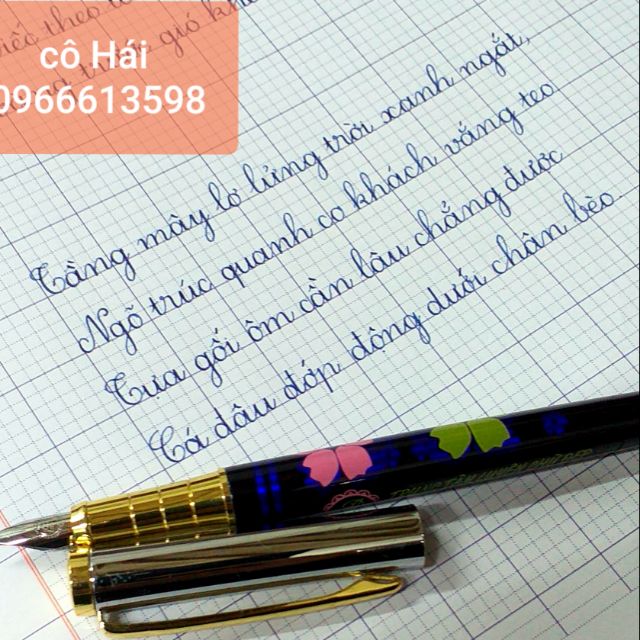 cô Hái
0966613598
viếc theo
trước gió
Tầng mây lơ lửng trời xanh ngắt,
Ngõ trúc quanh co khách vắng teo
Tựa gối ôm cần lâu chẳng được
Cá đâu đớp động dưới chân bèo